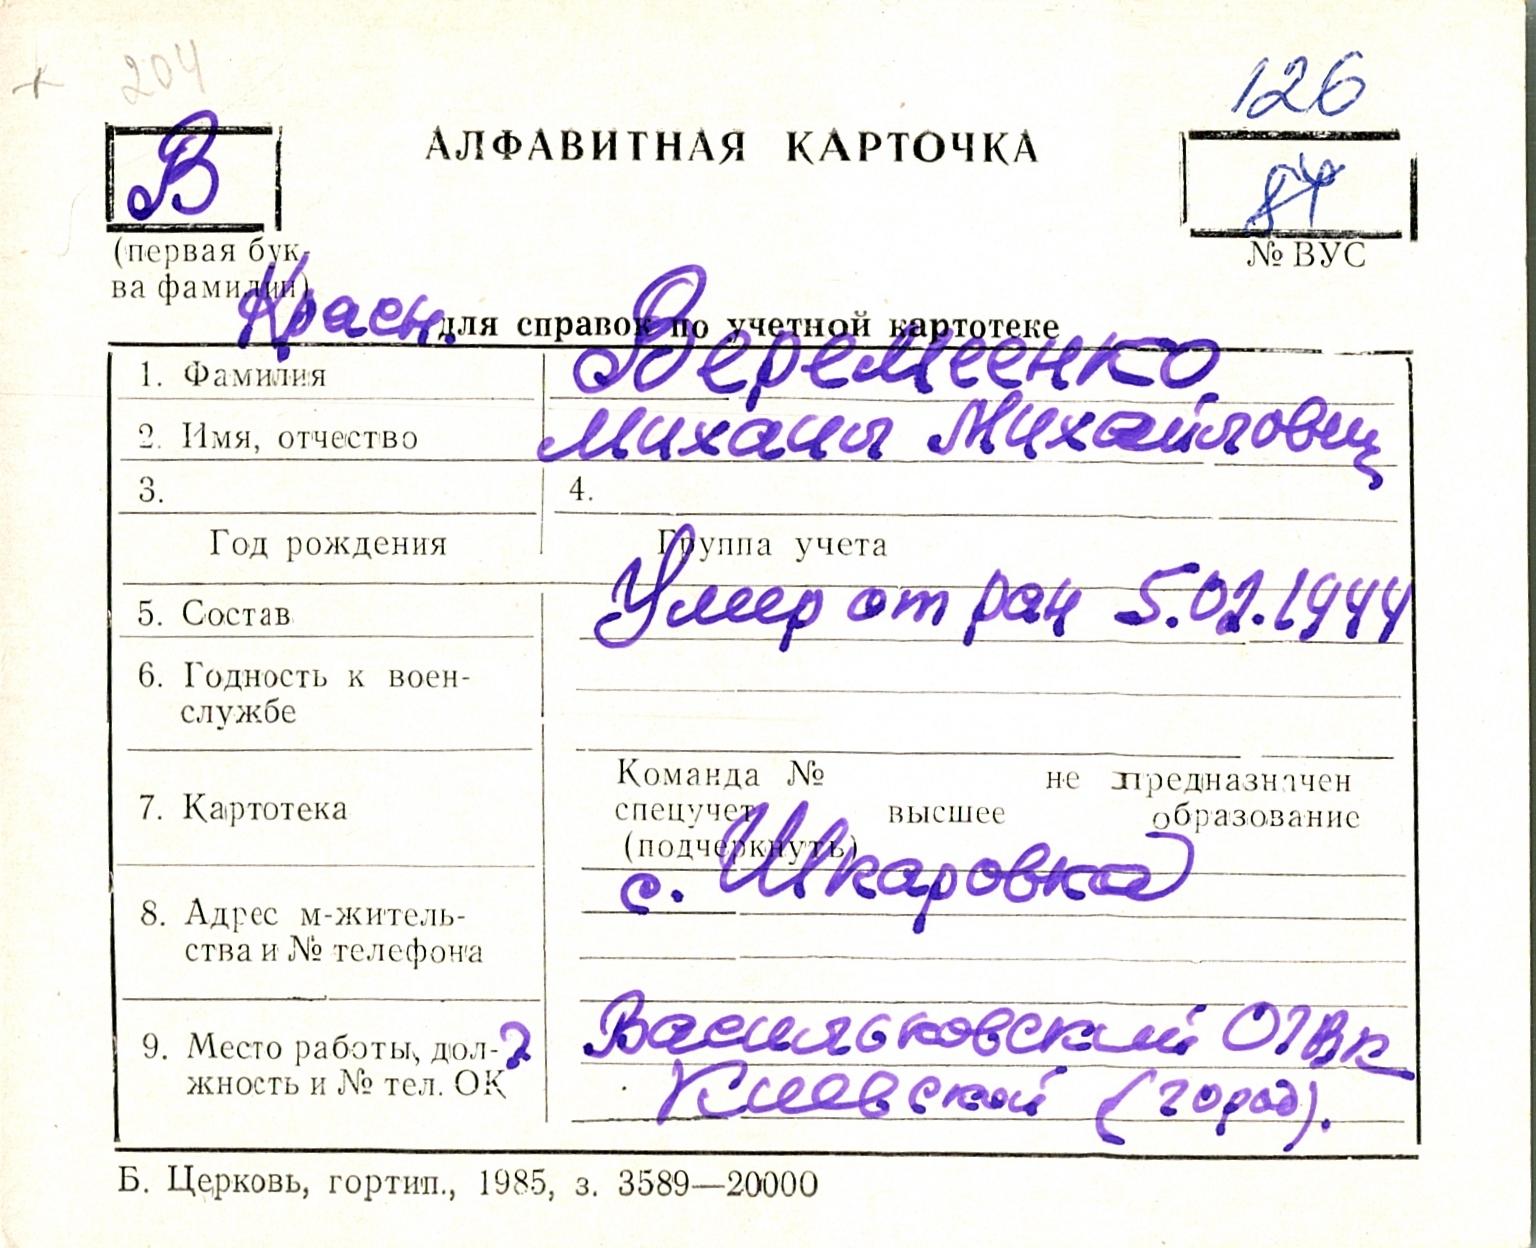 204
126
В
АЛФАВИТНАЯ КАРТОЧКА
84
(первая бук-
ва фамилии)
№ ВУС
Красн.
для справок по учетной картотеке
1. Фамилия Веремеенко
2. Имя, отчество Михаил Михайлович
3. 4.
Год рождения Группа учета
5. Состав Умер от ран 5.02.1944
6. Годность к воен-
службе
Команда № не предназначен
7. Картотека спецучет высшее образование
(подчеркнуть)
с. Шкаровка
8. Адрес м-житель-
ства и № телефона
9. Место работы, дол- ? Васильковский ОГВК
жность и № тел. ОК Киевской (город).
Б. Церковь, гортип., 1985, з. 3589—20000